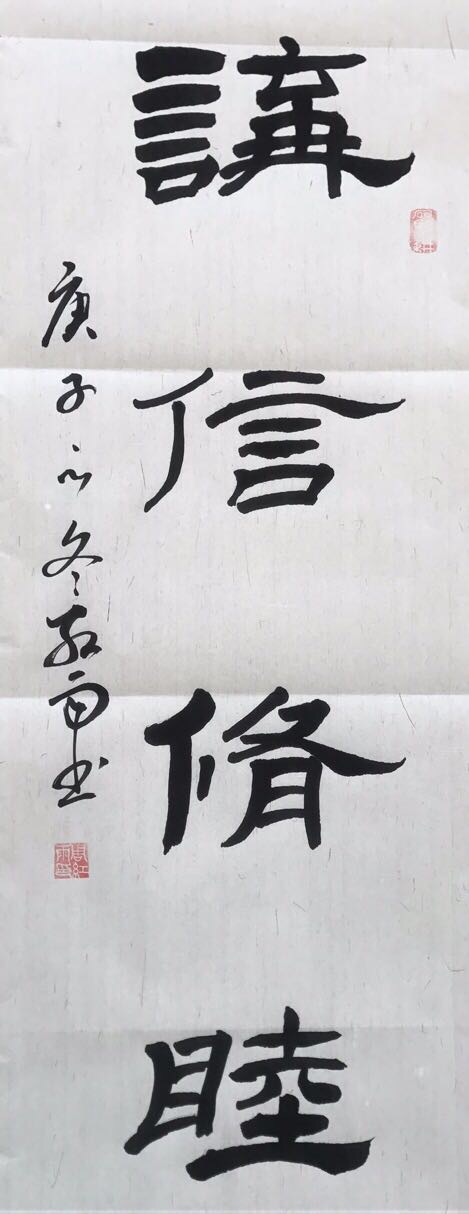 講信脩睦
庚子之冬 雨书